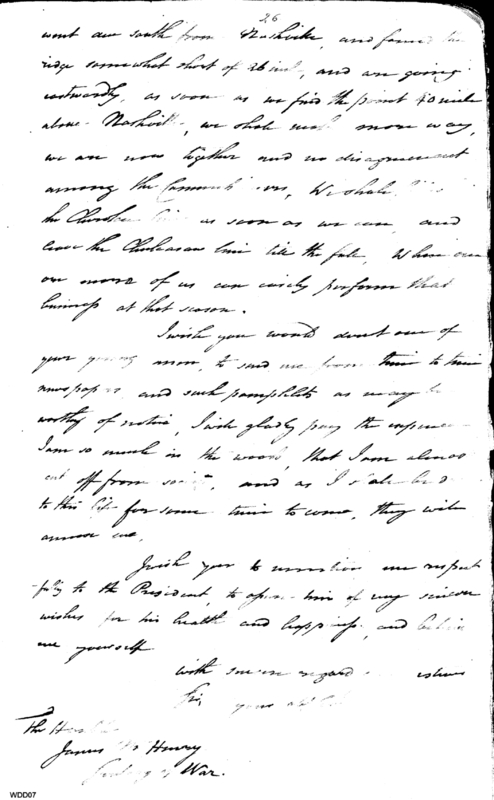 26
went due south from Nashville, and found the
ridge somewhat short of 26 miles, and are going
eastwardly, as soon as we find the point 40 miles
above Nashville, we shall make more way,
we are now together and no disagreement
among the We shall
the Cherokee line as soon as we can, and
leave the Chickasaw line till the fall, when one
or more of us can easily perform that
business at that season.
I wish you would direct one of
your young men, to send me from time to time
newspapers and such pamphlets as may be
worthy of notice, I will gladly pay the expence
I am so much in the woods, that I am almost
cut off from society, and as I shall be
to this life for some time to come, they will
amuse me.
I wish you to mention me respect
-fully to the President, to assure him of my sincere
wishes for his health and happiness, and believe
me yourself
with sincere regard esteem
Sir, your
The Honble
James McHenry
Secretary of War.
WDD07